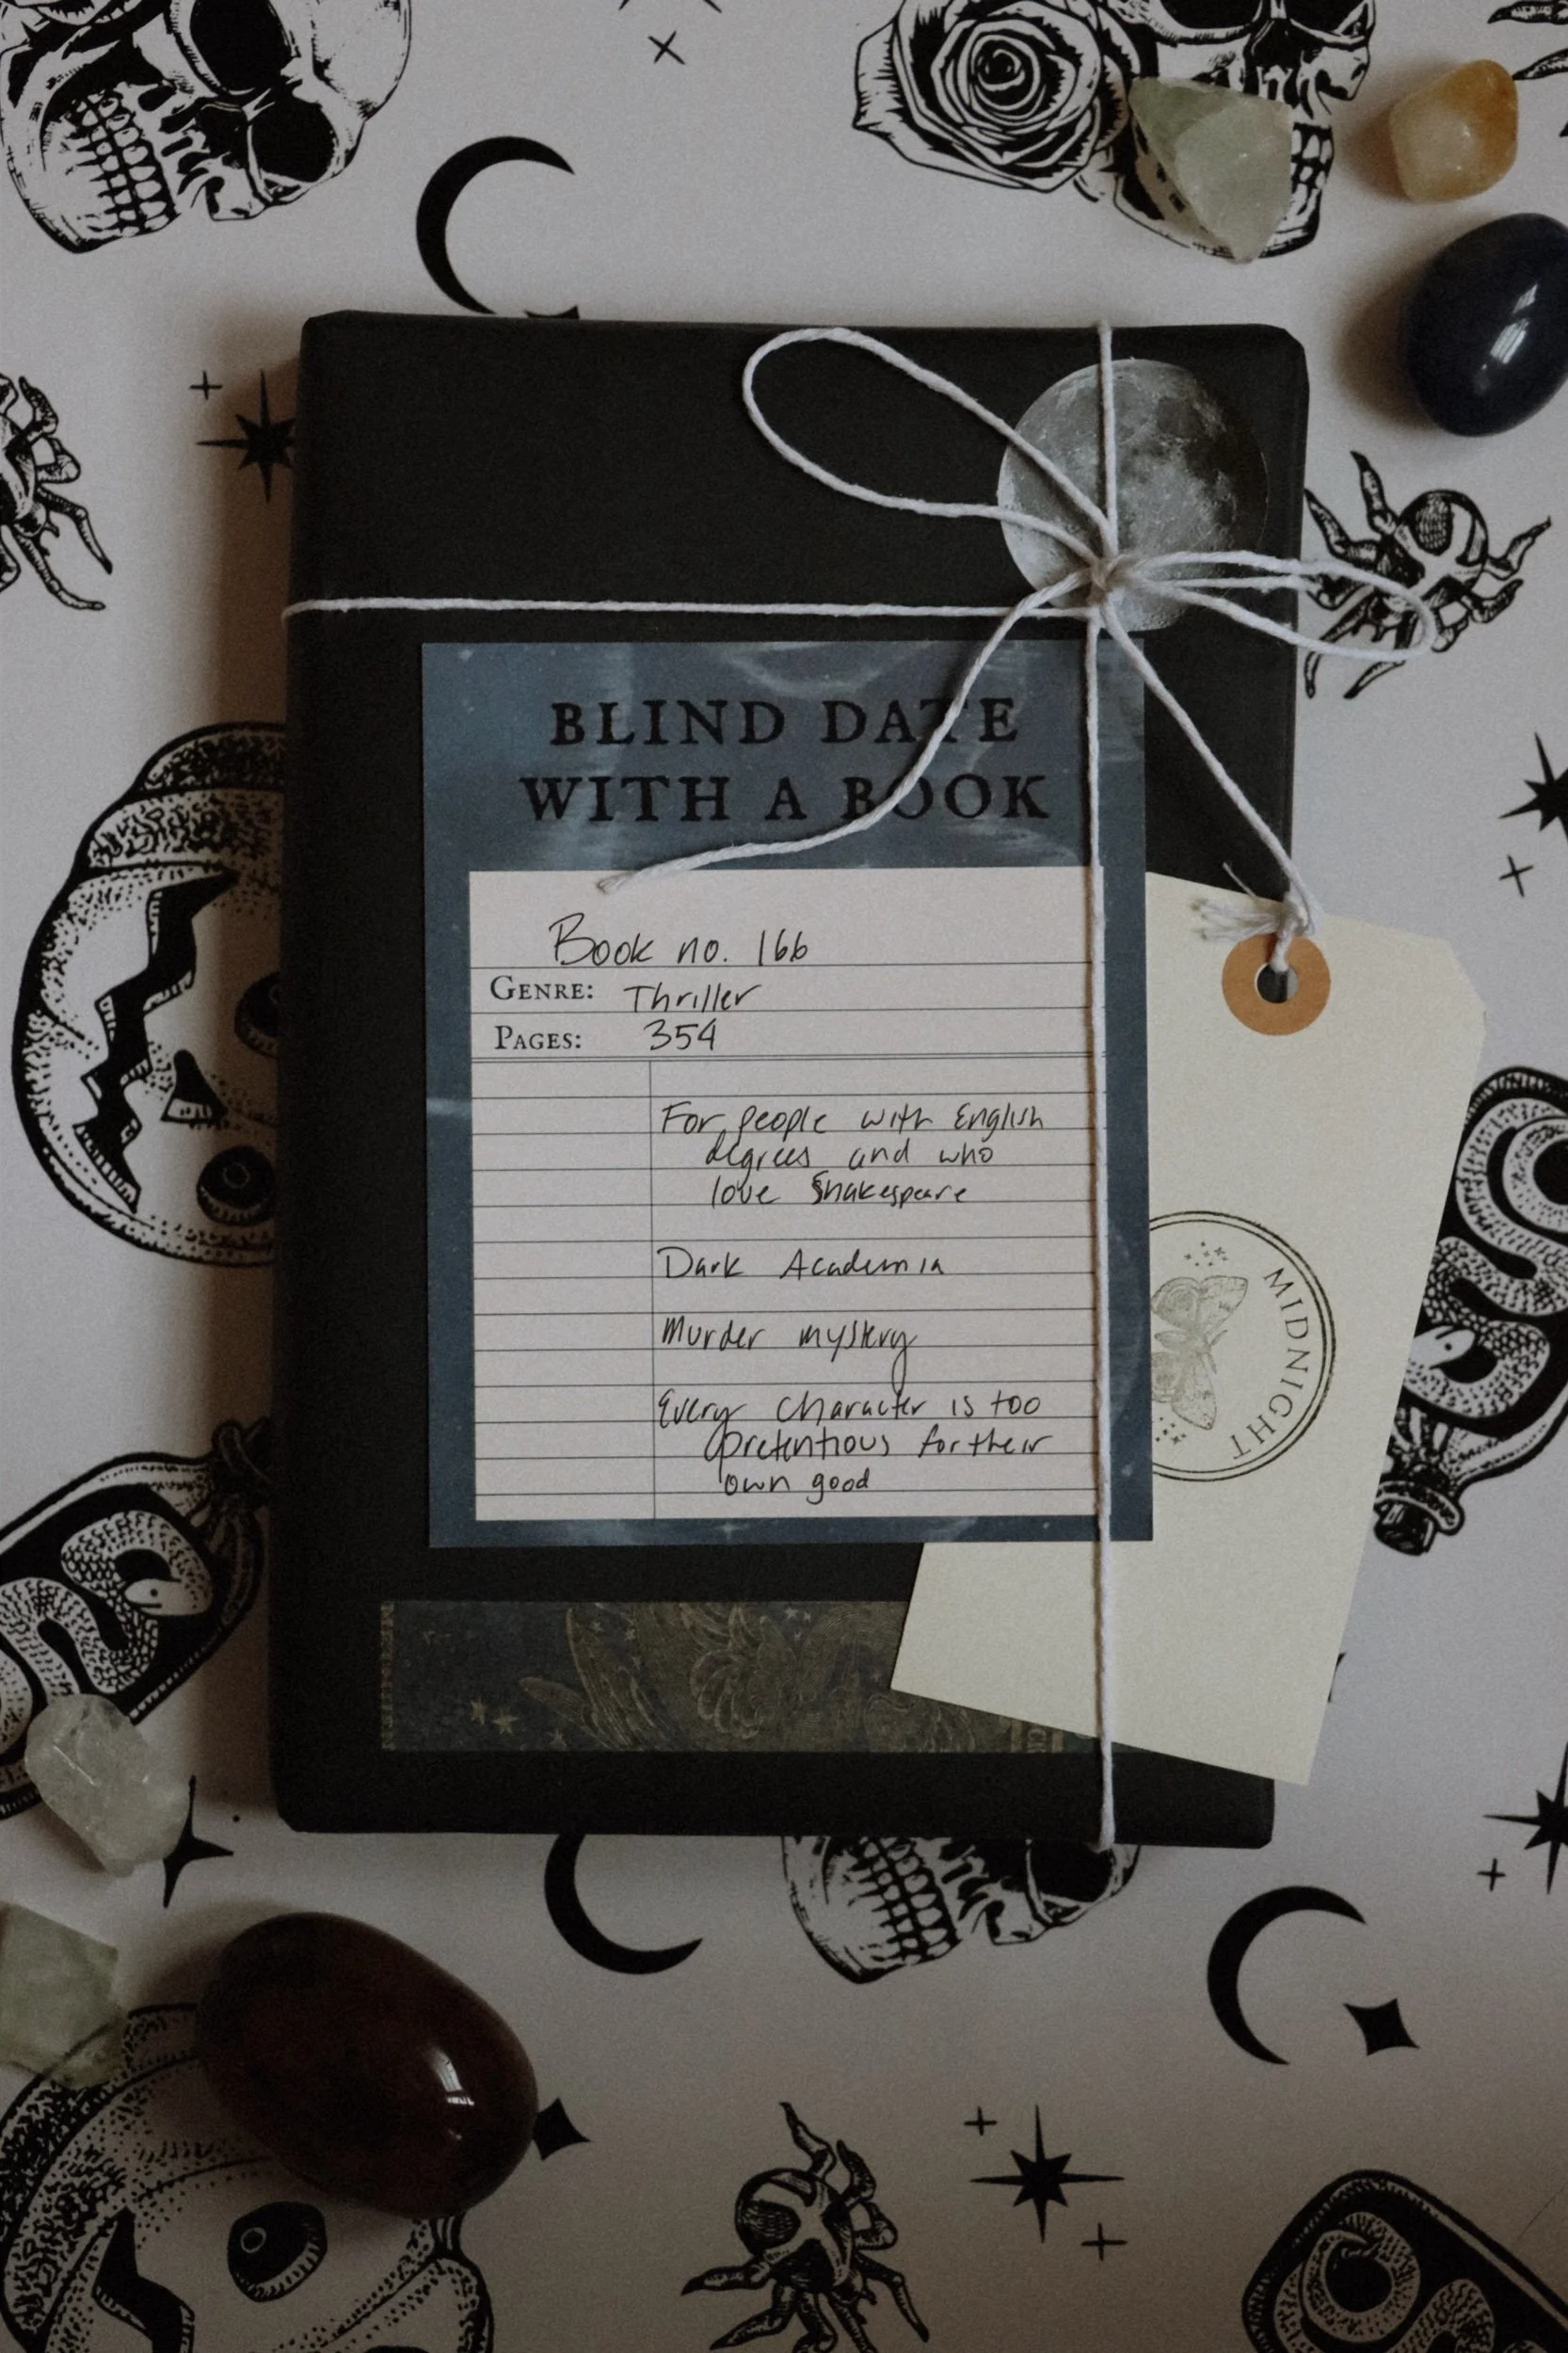 BLIND DATE
WITH A BOOK
Book no. 166
GENRE: Thriller
PAGES: 354
For people with English
degrees and who
love Shakespeare
Dark Academia
Murder mystery
Every character is too
pretentious for their
own good
MIDNIGHT